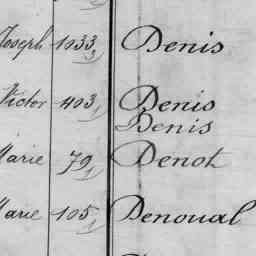 Joseph 1033/3 Denis
Victor 403/1 Denis
Denis
Marie 79/1 Denot
Marie 105/1 Denoual